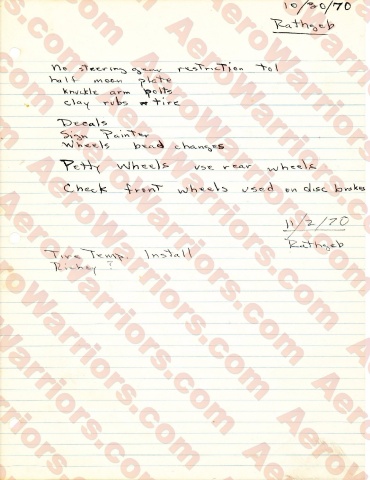 10/30/70
Rathgeb
No steering gear restriction tol
half moon plate
knuckle arm bolts
clay rubs on tire
Decals
Sign Painter
Wheels bead changes
Petty Wheels use rear wheels
Check front wheels used on disc brakes
11/2/70
Rathgeb
Tire Temp. Install
Richey ?
AeroWarriors.com